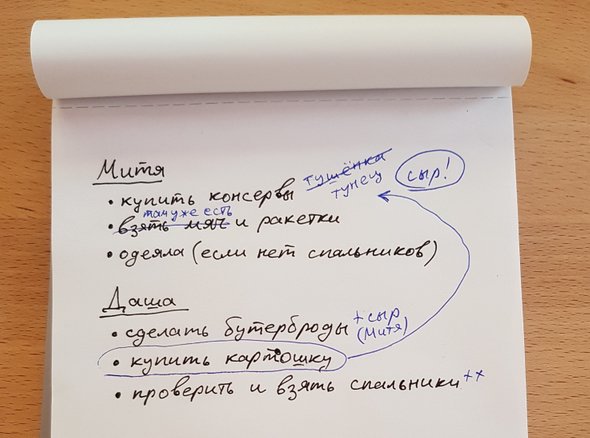 Митя
• купить консервы тушёнка тунец сыр!
там уже есть
• взять мяч и ракетки
• одеяла (если нет спальников)
Даша
• сделать бутерброды + сыр (Митя)
• купить картошку
• проверить и взять спальники ++